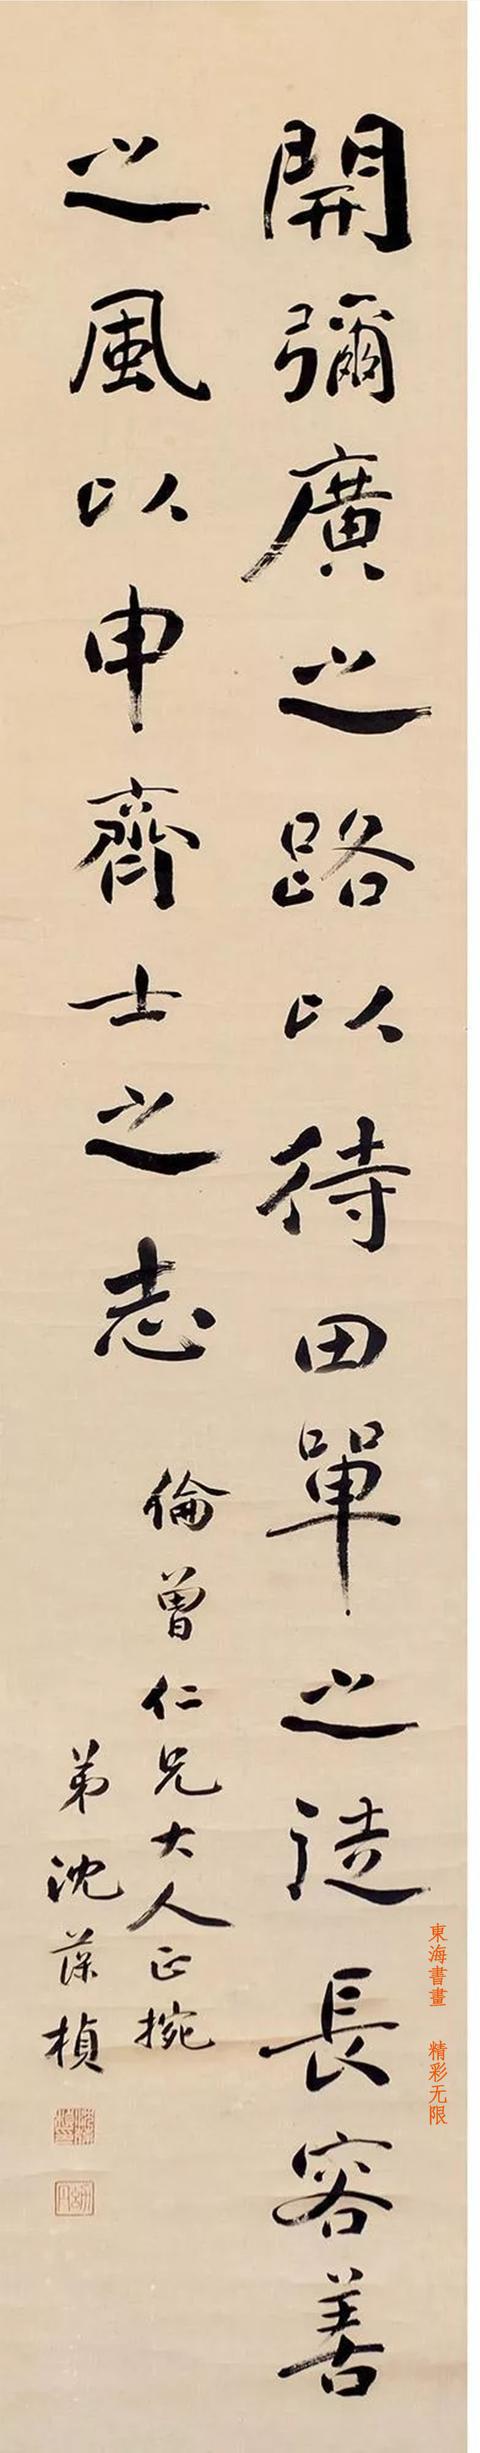 開彌廣之路以待田單之徒長容善
之風以申齊士之志
倫曾仁兄大人正捥
弟沈葆楨
東海書畫 精彩无限